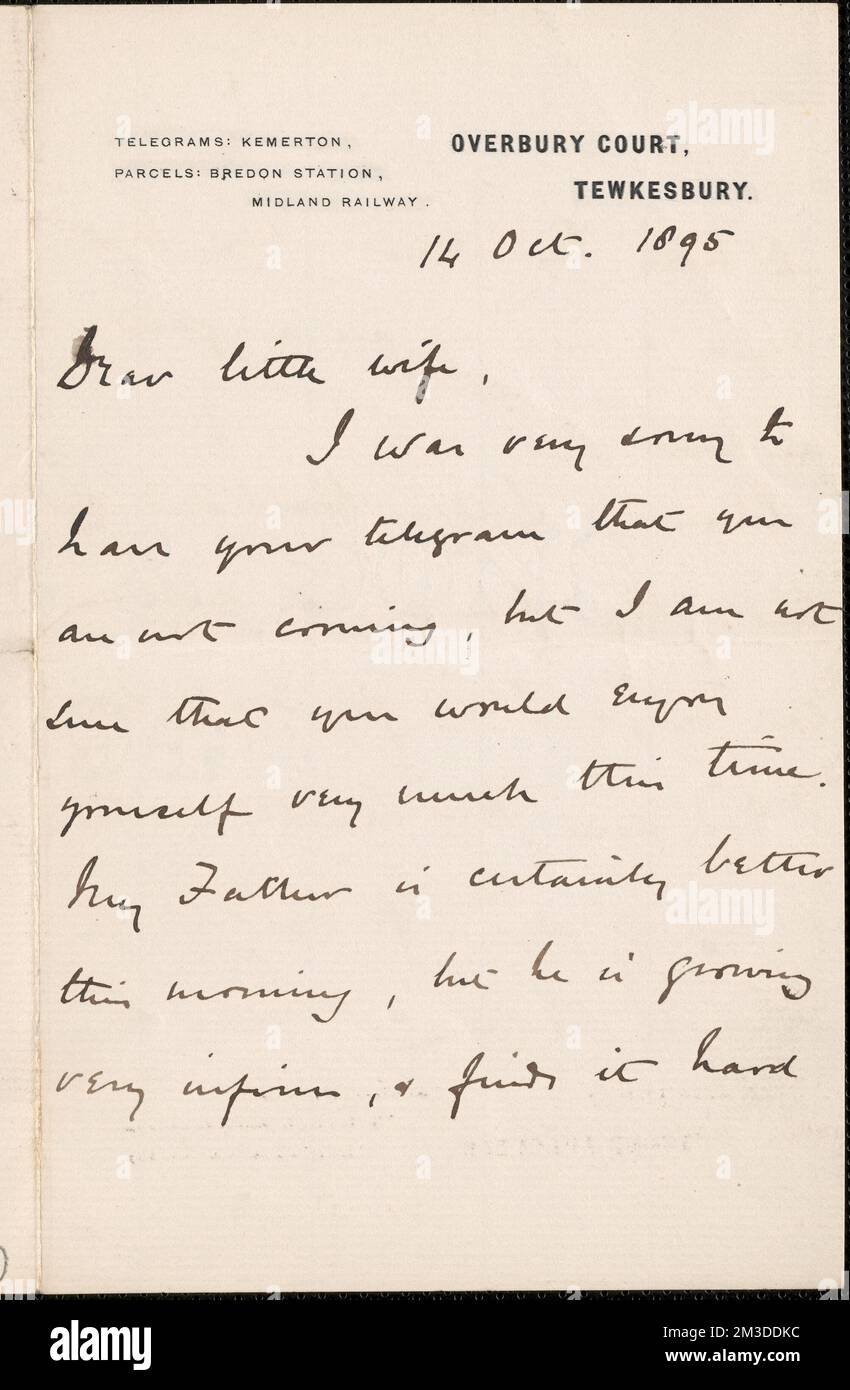 TELEGRAMS: KEMERTON,
PARCELS: BREDON STATION,
MIDLAND RAILWAY.
OVERBURY COURT,
TEWKESBURY.
14 Oct. 1895
Dear little wife,
I was very sorry to
have your telegram that you
are not coming, but I am not
sure that you would enjoy
yourself very much this time.
My Father is certainly better
this morning, but he is growing
very infirm, & finds it hard
alamy
alamy
alamy
Image ID: 2M3DDKC
www.alamy.com